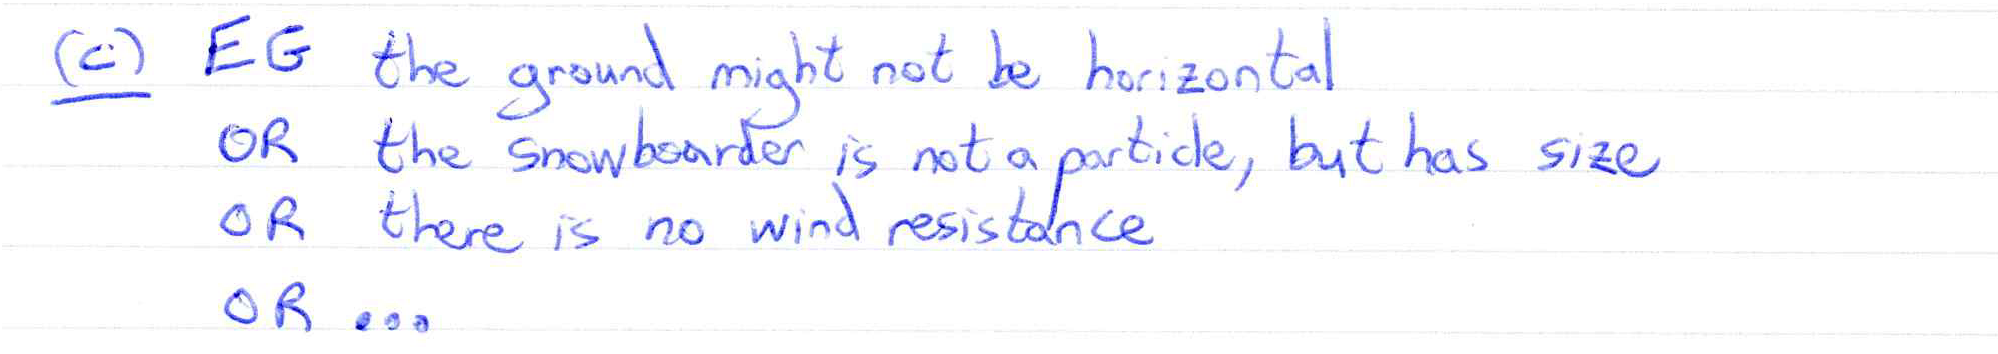 (c) EG the ground might not be horizontal
OR the snowboarder is not a particle, but has size
OR there is no wind resistance
OR ...